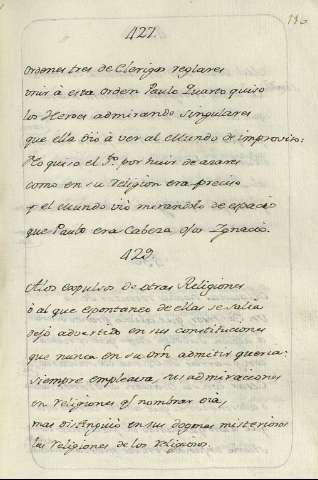 196
427.
Ordenes tres de Clerigos reglares
unir à esta orden Paulo Quarto quiso
los Heroes admirando singulares
que ella diò à ver al Mundo de improviso:
No quiso el Sto. por huir de azares
como en su religion era preciso
y el Mundo viò mirandolo de espacio
que Paulo era Cabeza, y
Ignacio.
429.
A los expulsos de otras Religiones
ò al que espontaneo de ellas se salia
dejò advertido en sus constituciones
que nunca en su orn admitir queria:
siempre empleava sus admiraciones
en religiones q nombrar oia,
mas distinguiò en sus dogmas misteriosos
las religiones de los religiosos.